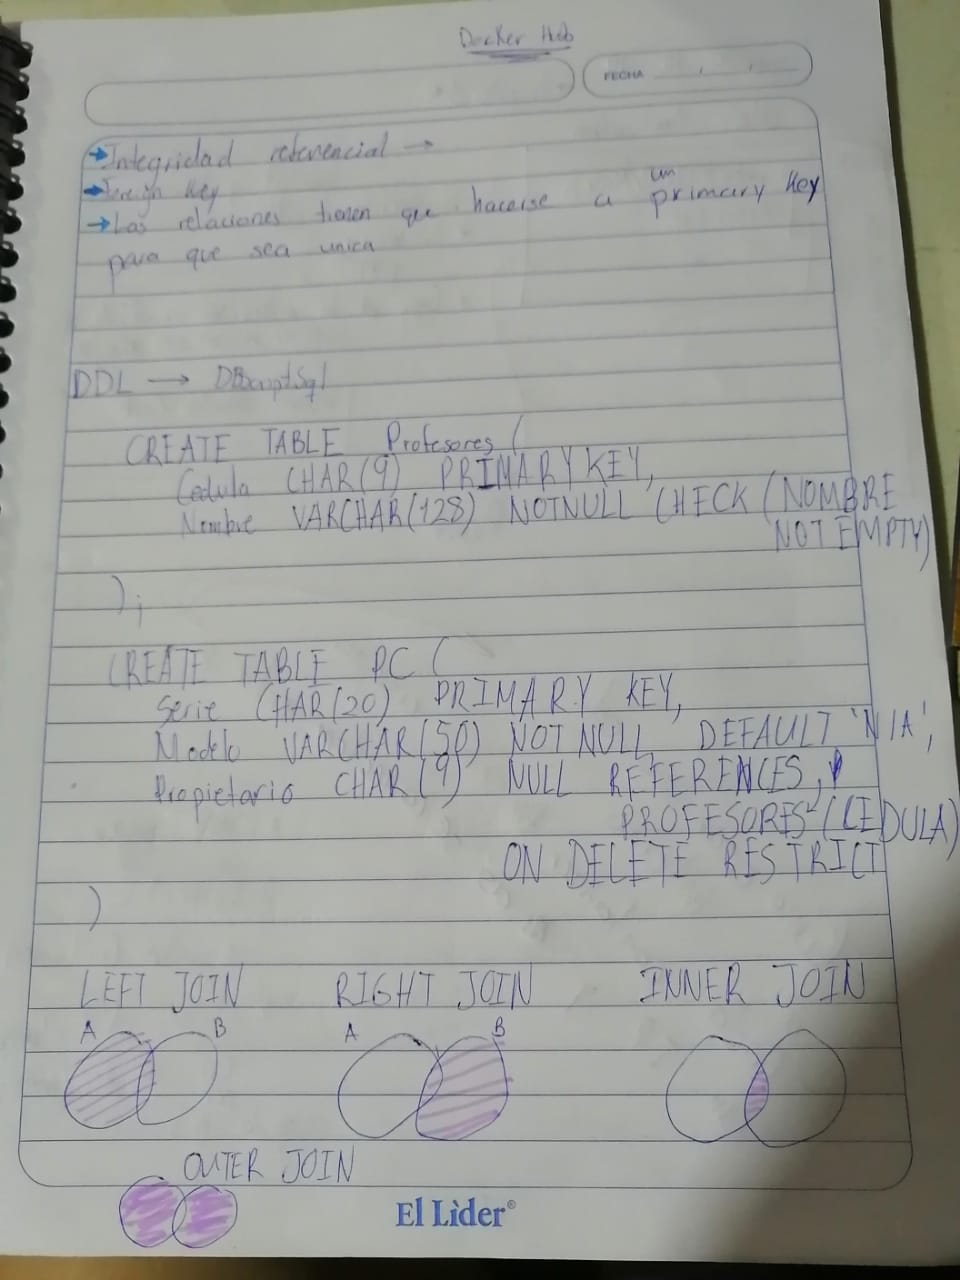 Docker Hub
FECHA
→ Integridad referencial →
→ Foreign Key
un
→ Las relaciones tienen que hacerse a primary Key
para que sea unica
DDL → DBscriptSql
CREATE TABLE Profesores (
Cedula CHAR(9) PRIMARY KEY,
Nombre VARCHAR(128) NOTNULL CHECK (NOMBRE
NOT EMPTY)
);
CREATE TABLE PC (
Serie CHAR(20) PRIMARY KEY,
Modelo VARCHAR(50) NOT NULL, DEFAULT 'N/A',
Propietario CHAR(9) NULL REFERENCES,
PROFESORES (CEDULA)
ON DELETE RESTRICT
)
LEFT JOIN RIGHT JOIN INNER JOIN
A B A B
OUTER JOIN
El Lìder®